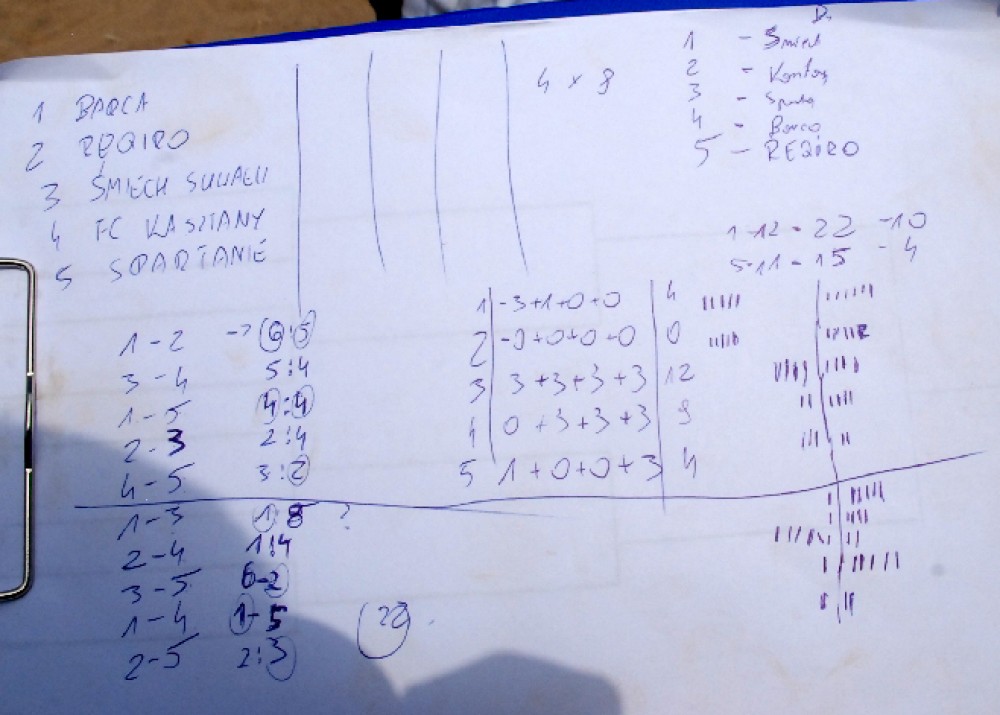 1 BARCA
2 REQIRO
3 ŚMIECH SUWAŁKI
4 FC KASZTANY
5 SPARTANIE
4 x 8
1 - Śmiech
2 -
3 - Sparta
4 - Barca
5 - REQIRO
1-12 - 22 -10
5-11 - 15 - 4
1 - 2 -> 6:5
3 - 4 5:4
1 - 5 4:4
2 - 3 2:4
4 - 5 3:2
1 - 3 1:8 ?
2 - 4 1:4
3 - 5 6-2
1 - 4 1-5
2 - 5 2:3
22
1 3+1+0+0 4
2 0+0+0+0 0
3 3+3+3+3 12
4 0+3+3+3 9
5 1+0+0+3 4